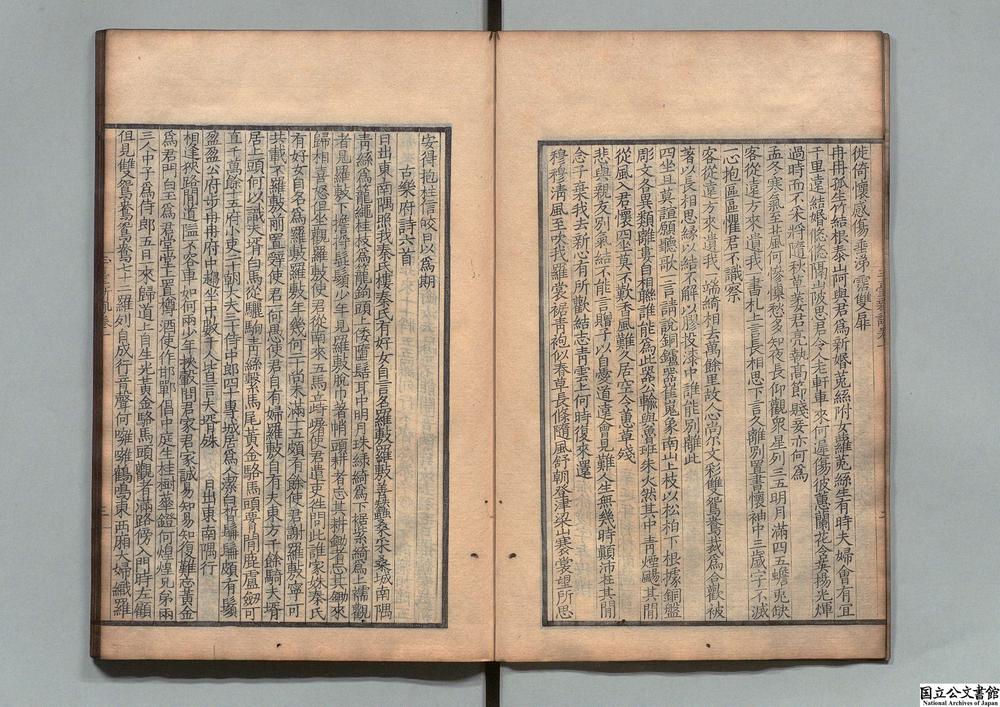 徙倚懷感傷垂涕霑雙扉
冉冉孤生竹結根泰山阿與君爲新婚菟絲附女蘿菟絲生有時夫婦會有宜
千里遠結婚悠悠隔山陂思君令人老軒車來何遲傷彼蕙蘭花含英揚光輝
過時而不采將隨秋草萎君亮執高節賤妾亦何爲
孟冬寒氣至北風何慘慄愁多知夜長仰觀衆星列三五明月滿四五蟾兔缺
客從遠方來遺我一書札上言長相思下言久離別置書懷袖中三歲字不滅
一心抱區區懼君不識察
客從遠方來遺我一端綺相去萬餘里故人心尚尔文彩雙鴛鴦裁爲合歡被
著以長相思緣以結不解以膠投漆中誰能別離此
四坐且莫諠願聽歌一言請說銅鑪器崔嵬象南山上枝以松柏下根據銅盤
彫文各異類離婁自相聯誰能爲此器公輸與魯班朱火然其中青煙颺其間
從風入君懷四坐莫不歡香風難久居空令蕙草殘
悲與親友別氣結不能言贈子以自愛道遠會見難人生無幾時顛沛在其間
念子棄我去新心有所歡結志青雲上何時復來還
穆穆清風至吹我羅裳裾青袍似春草長條隨風舒朝登津梁山褰裳望所思
安得抱柱信皎日以爲期
古樂府詩六首
日出東南隅照我秦氏樓秦氏有好女自言名羅敷羅敷善蠶桑采桑城南隅
青絲爲籠繩桂枝爲籠鉤頭上倭墮髻耳中明月珠綠綺爲下裾紫綺爲上襦觀
者見羅敷下擔捋髭鬚少年見羅敷脫巾著帩頭耕者忘其耕鋤者忘其鋤來
歸相喜怒但坐觀羅敷使君從南來五馬立峙躇使君遣吏往問此誰家姝秦氏
有好女自名爲羅敷羅敷年幾何二十尚未滿十五頗有餘使君謝羅敷寧可
共載不羅敷前置辭使君一何愚使君自有婦羅敷自有夫東方千餘騎夫壻
居上頭何以識夫壻白馬從驪駒青絲繫馬尾黃金駱馬頭腰間鹿盧劒可
直千萬餘十五府小史二十朝大夫三十侍中郎四十專城居爲人潔白皙鬑鬑頗有鬚
盈盈公府步冉冉府中趨坐中數千人皆言夫壻殊 日出東南隅行
相逢狹路間道隘不容車如何兩少年挾轂問君家君家誠易知易知復難忘黃金
爲君門白玉爲君堂堂上置樽酒使作邯鄲倡中庭生桂樹華鐙何煌煌兄弟兩
三人中子爲侍郎五日一來歸道上自生光黃金駱馬頭觀者滿路傍入門時左顧
但見雙鴛鴦鴛鴦七十二羅列自成行音聲何噰噰鶴鳴東西廂大婦織羅
国立公文書館
National Archives of Japan